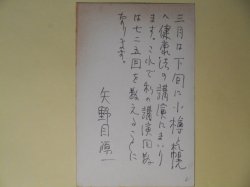 三月は下旬に小樽札幌
へ健康法の講演にまいり
ます。これで私の講演回数
は七二五回を数えることに
なります。
矢野目源一